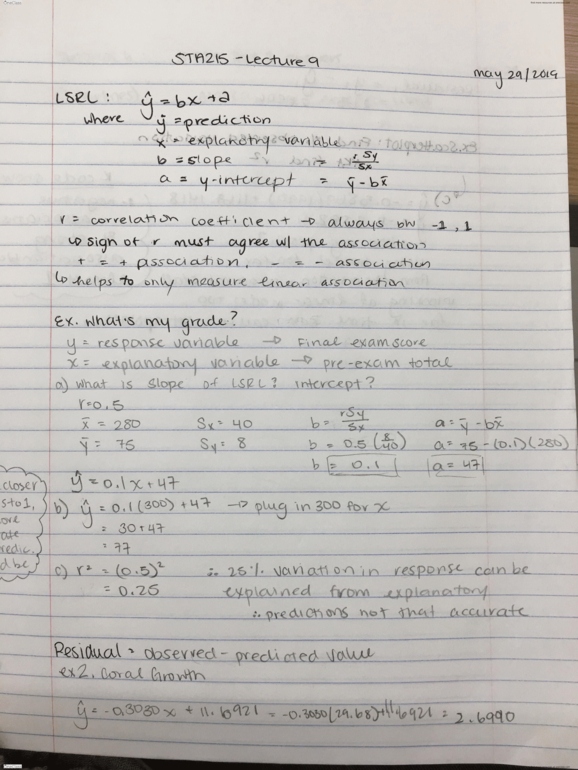 STA215 - Lecture 9
may 29/2019
LSRL: ŷ = bx + a
where ŷ = prediction
x = explanatry variable
b = slope = r Sy/Sx
a = y-intercept = ȳ - bx̄
r = correlation coefficient → always bw -1, 1
↳ sign of r must agree w/ the association
+ = + association, - = - association
↳ helps to only measure linear association
Ex. What's my grade?
y = response variable → Final exam score
x = explanatory variable → pre-exam total
a) what is slope of LSRL? intercept?
r=0.5
x̄ = 280 Sx = 40 b = rSy/Sx a = ȳ - bx̄
ȳ = 75 Sy = 8 b = 0.5 (8/40) a = 75 - (0.1)(280)
b = 0.1 a = 47
ŷ = 0.1x + 47
closer
s to 1,
ore
ate
redic.
d be
b) ŷ = 0.1(300) + 47 → plug in 300 for x
= 30 + 47
= 77
c) r² = (0.5)² ∴ 25% variation in response can be
= 0.25 explained from explanatory
∴ predictions not that accurate
Residual = observed - predicted value
ex2. Coral Growth
ŷ = -0.3030x + 11.6921 = -0.3030(29.68)+11.6921 = 2.6990